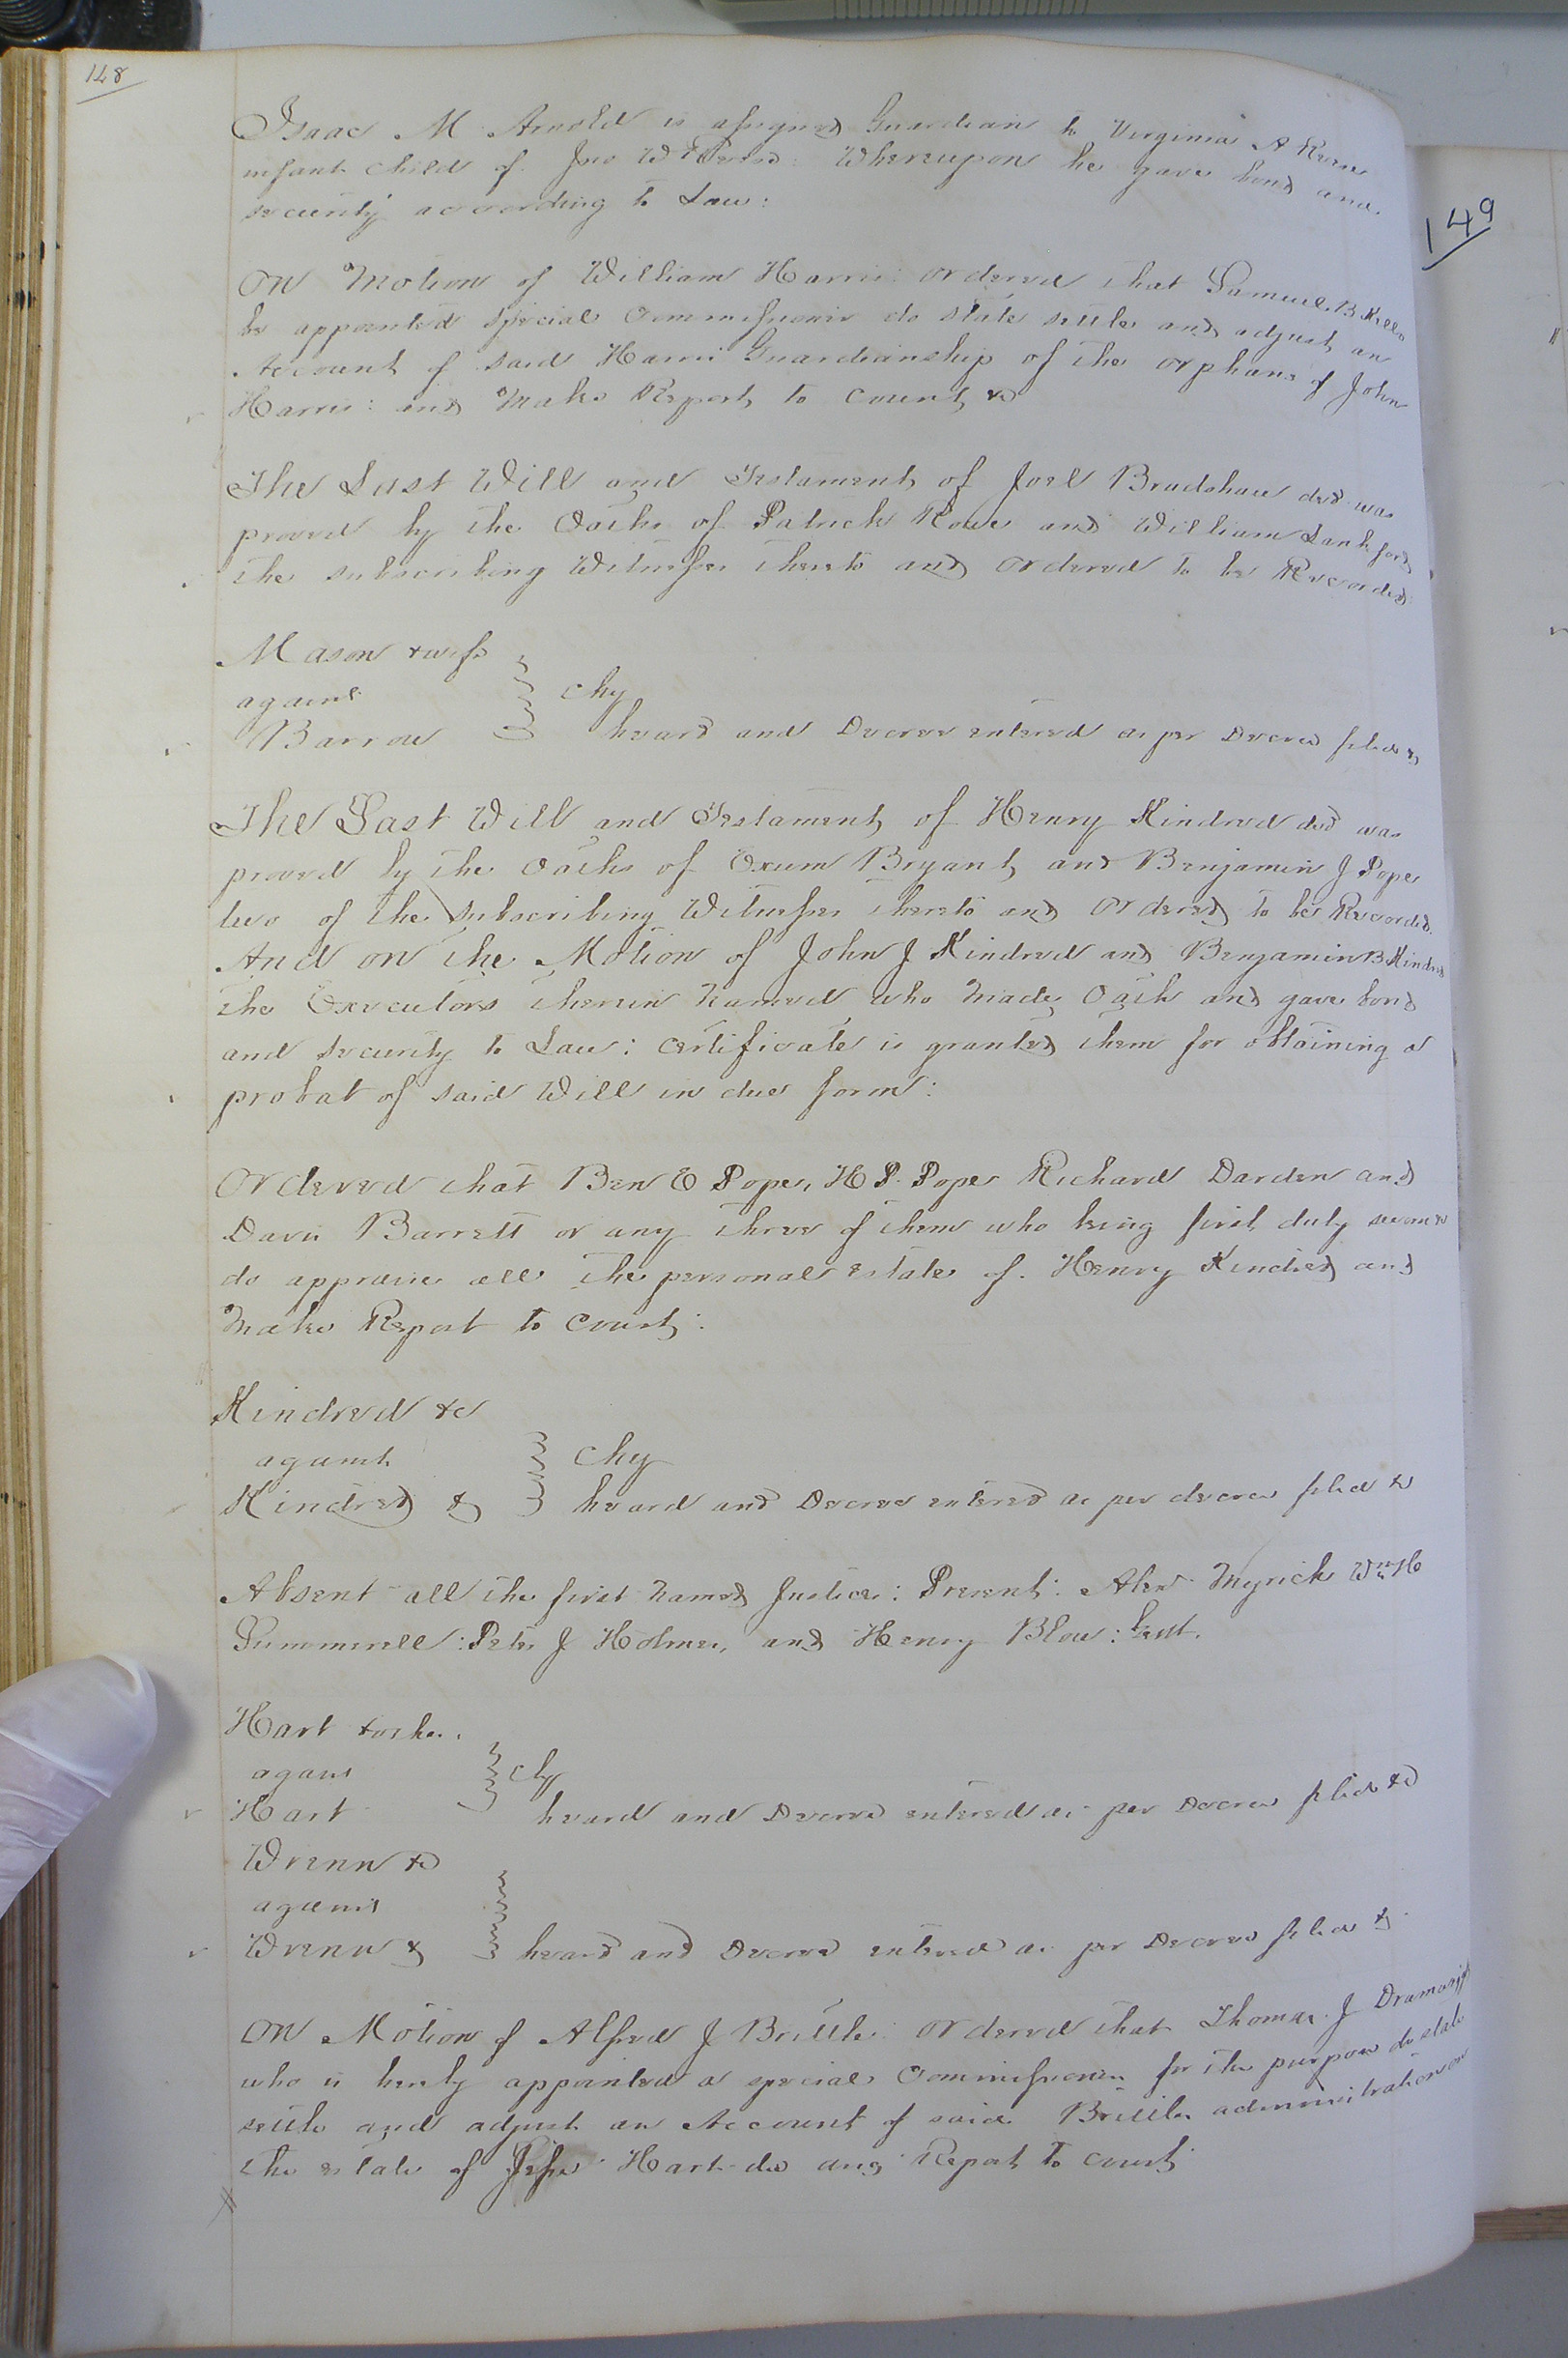 148
Isaac M Arnold is assigned Guardian to Virginia A
infant child of Jno W Whereupon he gave bond and
security according to Law:
On Motion of William Harris ordered that Samuel B Kello
be appointed special Commissioner do state settle and adjust an
Account of said Harris Guardianship of the orphans of John
Harris: and Make Report to Court &c
The Last Will and Testament of Joel Bradshaw decd was
proved by the Oaths of Patrick Rowe and William Lankford
the subscribing Witnesses thereto and ordered to be Recorded
Mason & wife
against
chy
Barrow
heard and Decree entered as per Decree filed &c
The Last Will and Testament of Henry Kindred decd was
proved by the Oaths of Exum Bryant and Benjamin J Pope
two of the subscribing Witnesses thereto and ordered to be Recorded.
And on the Motion of John J Kindred and Benjamin B Kindred
the Executors therein named who made Oath and gave bond
and security to Law: certificate is granted them for obtaining a
probat of said Will in due form:
Ordered that Ben E Pope, H P. Pope Richard Darden and
Davis Barrett or any three of them who being first duly sworn
do appraise all the personal estate of Henry Kindred and
Make Report to Court:
Kindred &c
against
chy
Kindred &
heard and Decree entered as per decree filed &c
Absent all the first named Justices: Present: Alex Myrick Wm H
Summerell: Peter J Holmes, and Henry Blow: Gent.
Hart & others.
agains
chy
Hart
heard and Decree entered as per Decree filed &c
Wrenn &c
against
Wrenn &
heard and Decree entered as per Decree filed &
On Motion of Alfred J Brittle ordered that Thomas J
who is hereby appointed a special Commissioner for the purpose do state
settle and adjust an Account of said Brittle administration on
the estate of Hart dec and Report to court
149